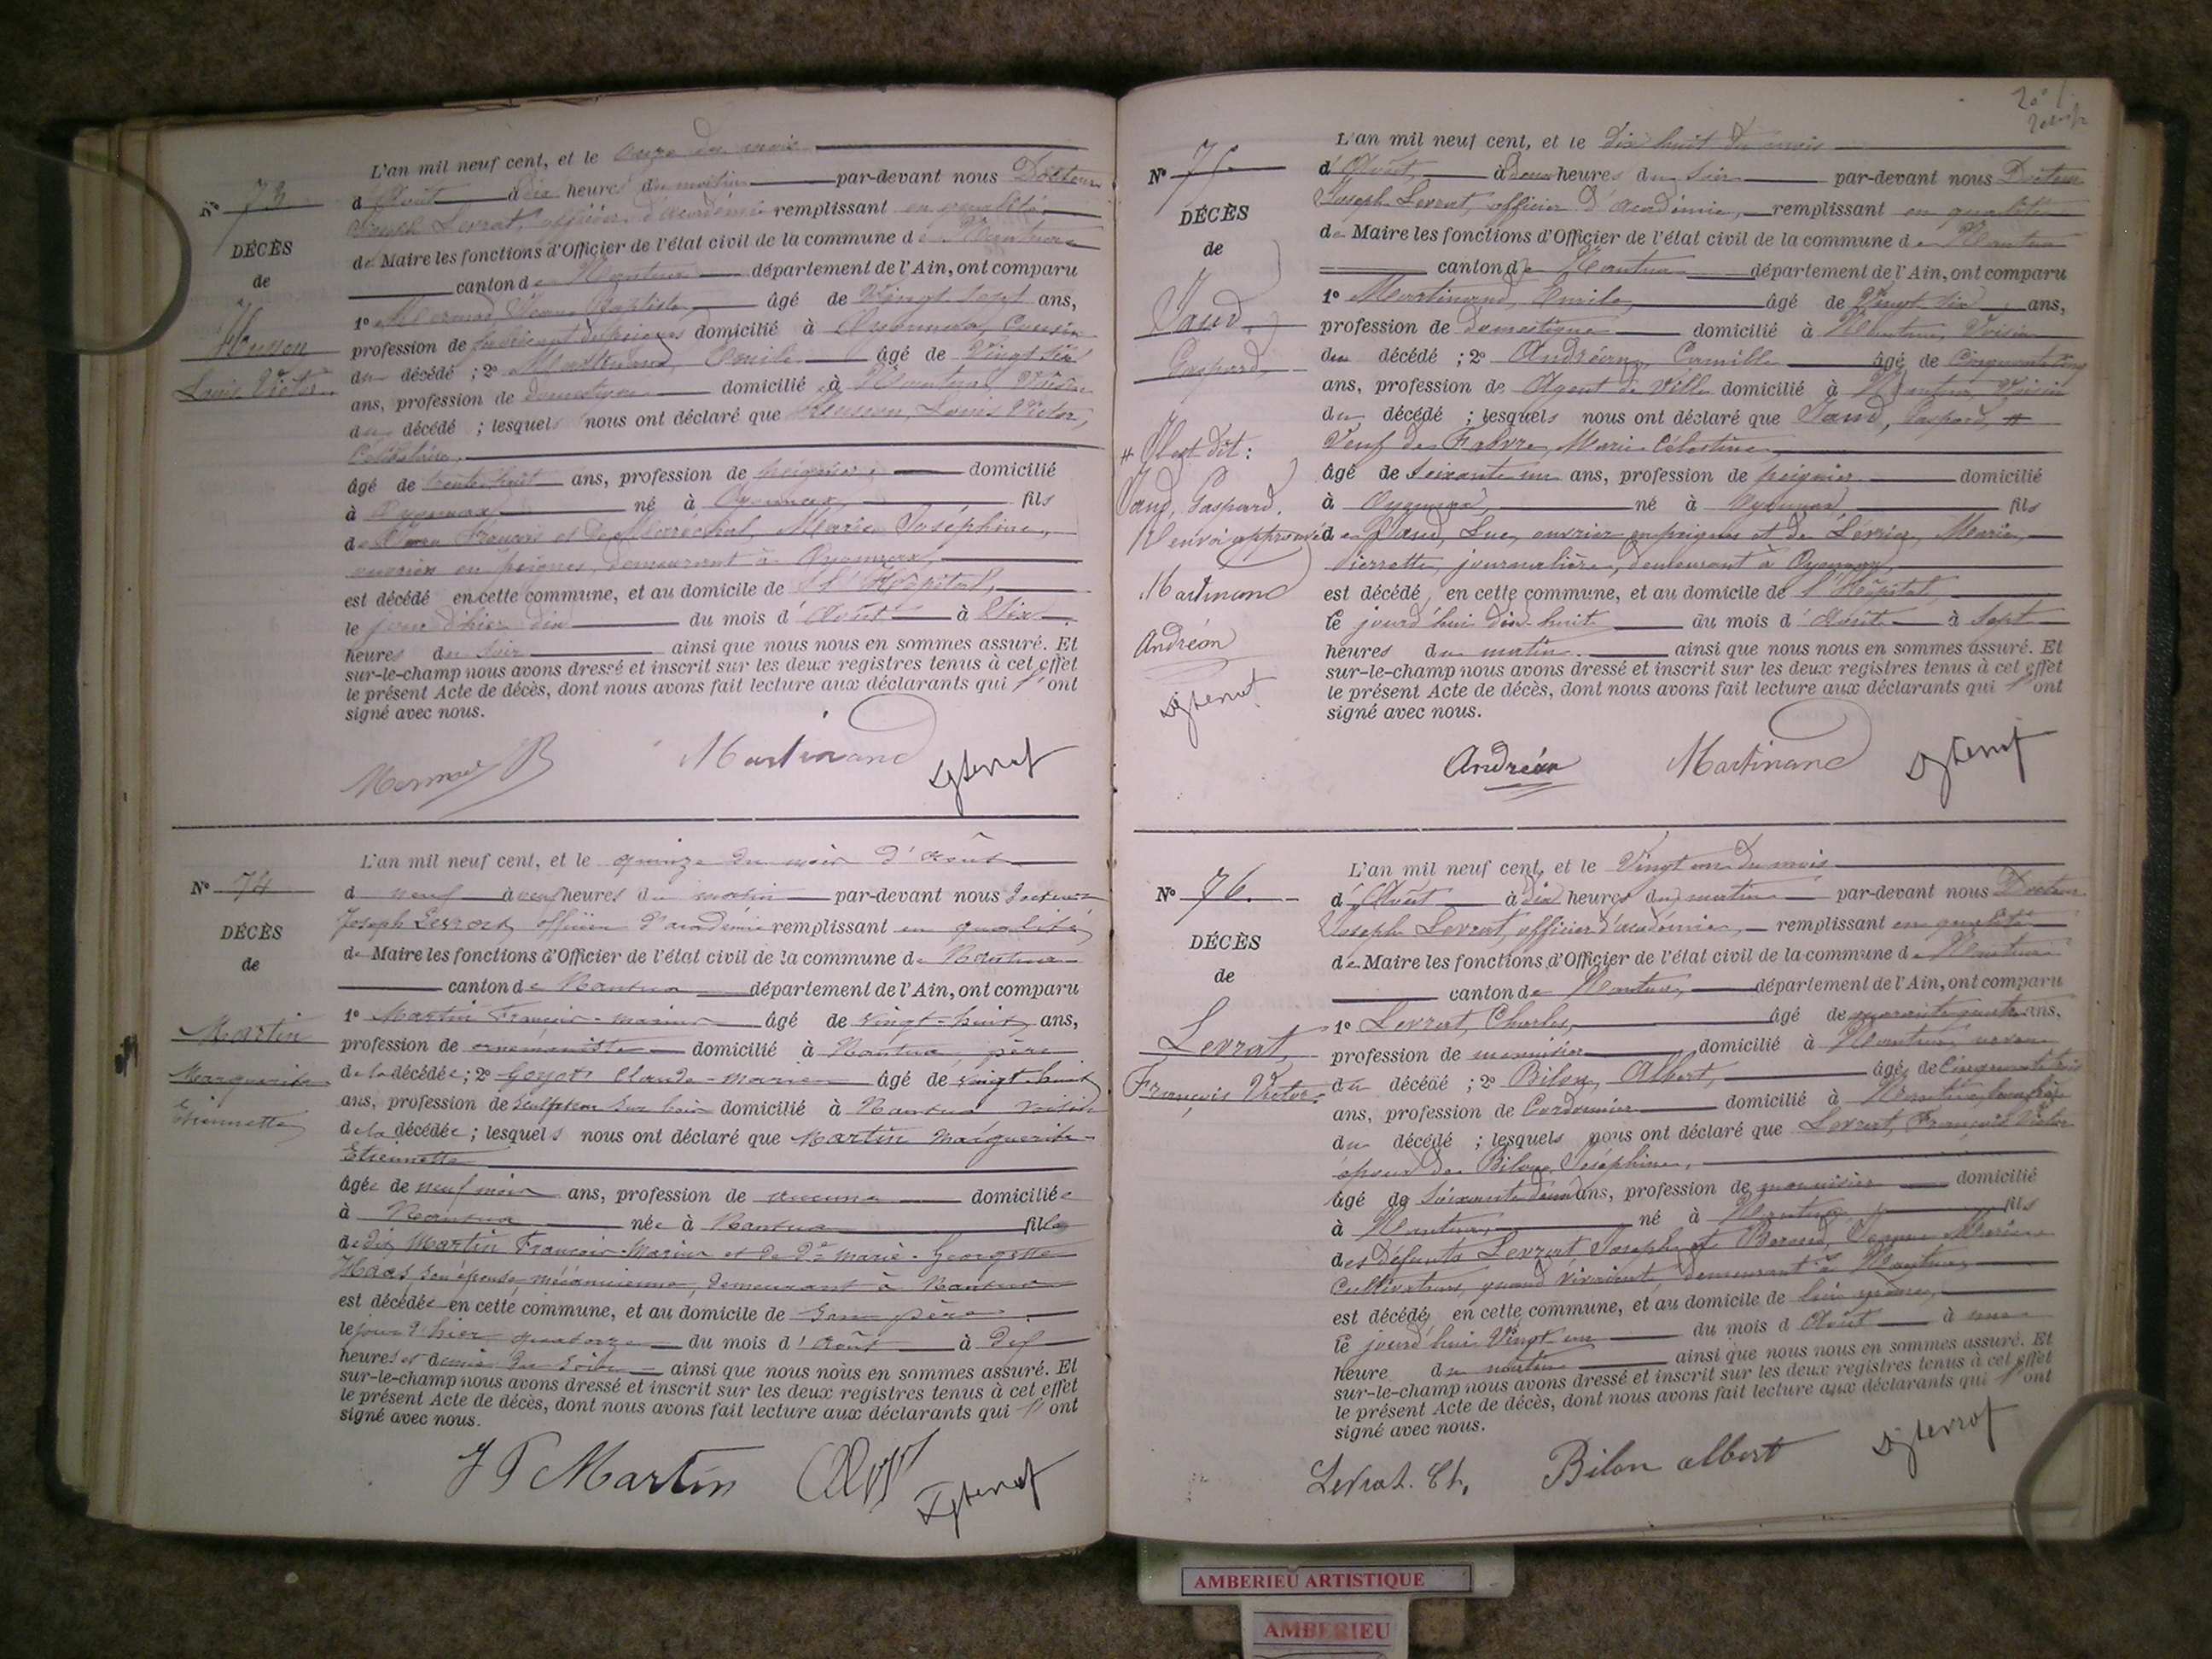 N° 73
DÉCÈS
de
Husson
Louis Victor
L'an mil neuf cent, et le onze du mois
d'Août à dix heures du matin par-devant nous Docteur
Joseph Levrat, officier d'académie remplissant en qualité
de Maire les fonctions d'Officier de l'état civil de la commune de Nantua
canton de Nantua département de l'Ain, ont comparu
1° Mermod, Jean Baptiste, âgé de Vingt sept ans,
profession de fabricant de peignes domicilié à Oyonnax, Cousin
du décédé ; 2° Martinand, Emile âgé de Vingt six
ans, profession de domestique domicilié à Nantua, Voisin
du décédé ; lesquels nous ont déclaré que Husson, Louis Victor,
Célibataire,
âgé de trente huit ans, profession de peignier, domicilié
à Oyonnax né à Oyonnax, fils
de François et de Maréchal, Marie Joséphine,
ouvriers en peignes, demeurant à Oyonnax,
est décédé en cette commune, et au domicile de l'Hôpital,
le jour d'hier dix du mois d'Août à Six
heures du soir ainsi que nous nous en sommes assuré. Et
sur-le-champ nous avons dressé et inscrit sur les deux registres tenus à cet effet
le présent Acte de décès, dont nous avons fait lecture aux déclarants qui l'ont
signé avec nous.
Mermod JB Martinand DJ Levrat
N° 74
DÉCÈS
de
Martin
Marguerite
Etiennette
L'an mil neuf cent, et le quinze du mois d'Août
à neuf heures du matin par-devant nous Docteur
Joseph Levrat, officier d'académie remplissant en qualité
de Maire les fonctions d'Officier de l'état civil de la commune de Nantua
canton de Nantua département de l'Ain, ont comparu
1° Martin François-Marius âgé de vingt-huit ans,
profession de ornemaniste domicilié à Nantua, père
de la décédée; 2° Goyot Claude-Marien âgé de vingt-huit
ans, profession de sculpteur sur bois domicilié à Nantua voisin
de la décédée; lesquels nous ont déclaré que Martin Marguerite-
Etiennette
âgée de neuf mois ans, profession de aucune domiciliée
à Nantua née à Nantua fille
de dit Martin François-Marius et de De Marie-Georgette
Haas, son épouse mécanicienne, demeurant à Nantua
est décédée en cette commune, et au domicile de son père
le jour d'hier quatorze du mois d'Août à dix
heures et demie du soir ainsi que nous nous en sommes assuré. Et
sur-le-champ nous avons dressé et inscrit sur les deux registres tenus à cet effet
le présent Acte de décès, dont nous avons fait lecture aux déclarants qui l'ont
signé avec nous.
F Martin DJ Levrat
N° 75
DÉCÈS
de
Jaud,
Gaspard,
# Il est dit :
Jaud, Gaspard.
Renvoi approuvé
Martinand
Andréan
DJ Levrat
L'an mil neuf cent, et le dix huit du mois
d'Août, à deux heures du soir par-devant nous Docteur
Joseph Levrat, officier d'académie, remplissant en qualité
de Maire les fonctions d'Officier de l'état civil de la commune de Nantua
canton de Nantua département de l'Ain, ont comparu
1° Martinand, Emile, âgé de Vingt six ans,
profession de domestique domicilié à Nantua, Voisin
du décédé ; 2° Andréan, Camille âgé de Cinquante cinq
ans, profession de Agent de Ville domicilié à Nantua, Voisin
du décédé ; lesquels nous ont déclaré que Jaud, Gaspard, #
Veuf de Fabvre, Marie Célestine,
âgé de soixante un ans, profession de peignier, domicilié
à Oyonnax, né à Oyonnax, fils
de Jaud, Luc, ouvrier en peignes et de Lévrier, Marie,
Pierrette, journalière, demeurant à Oyonnax,
est décédé, en cette commune, et au domicile de l'Hôpital,
le jourd'hui dix-huit du mois d'Août à sept
heures du matin. ainsi que nous nous en sommes assuré. Et
sur-le-champ nous avons dressé et inscrit sur les deux registres tenus à cet effet
le présent Acte de décès, dont nous avons fait lecture aux déclarants qui l'ont
signé avec nous.
Andréan Martinand DJ Levrat
N° 76.
DÉCÈS
de
Levrat,
François Victor.
L'an mil neuf cent, et le Vingt un du mois
d'Août à dix heures du matin par-devant nous Docteur
Joseph Levrat, officier d'académie, remplissant en qualité
de Maire les fonctions d'Officier de l'état civil de la commune de Nantua
canton de Nantua, département de l'Ain, ont comparu
1° Levrat, Charles, âgé de quarante quatre ans,
profession de menuisier domicilié à Nantua, neveu
du décédé ; 2° Bilon, Albert, âgé de Cinquante trois
ans, profession de Cordonnier domicilié à Nantua, beau frère
du décédé ; lesquels nous ont déclaré que Levrat, François Victor
époux de Bilon, Joséphine,
âgé de Soixante deux ans, profession de menuisier domicilié
à Nantua, né à Nantua, fils
des défunts Levrat, Joseph et Bernard, Jeanne Marie
Cultivateurs, quand vivaient, demeurant à Nantua,
est décédé, en cette commune, et au domicile de lui-même,
le jourd'hui Vingt un du mois d'Août à une
heure du matin ainsi que nous nous en sommes assuré. Et
sur-le-champ nous avons dressé et inscrit sur les deux registres tenus à cet effet
le présent Acte de décès, dont nous avons fait lecture aux déclarants qui l'ont
signé avec nous.
Levrat. Ch, Bilon albert DJ Levrat
AMBERIEU ARTISTIQUE
AMBERIEU